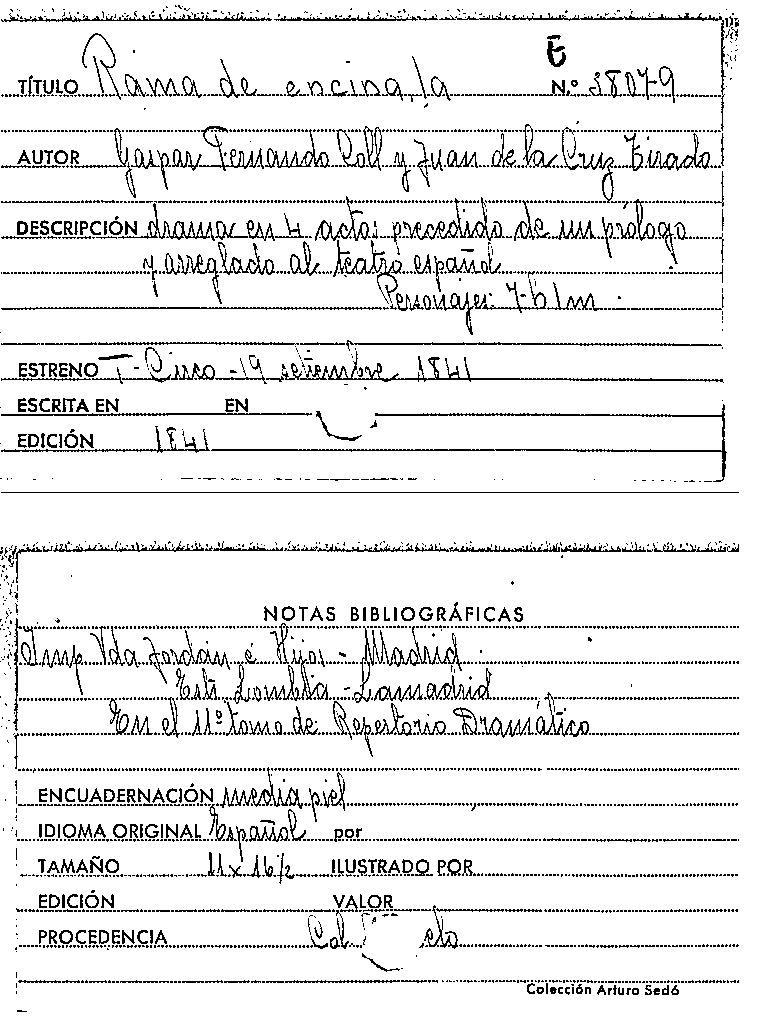 E
TÍTULO Rama de encina, la N.º 38079
AUTOR Gaspar Fernando Coll y Juan de la Cruz Tirado
DESCRIPCIÓN drama en 4 actos precedido de un prólogo
y arreglado al teatro español
Personajes: 7-b 1m
ESTRENO T-Circo - 19 setiembre 1841
ESCRITA EN EN
EDICIÓN 1841
NOTAS BIBLIOGRÁFICAS
Imp Vda Jordán é Hijos - Madrid
Est: Lombia - Lamadrid
En el 11º tomo de: Repertorio Dramático
ENCUADERNACIÓN media piel
IDIOMA ORIGINAL Español por
TAMAÑO 11 x 16 1/2 ILUSTRADO POR
EDICIÓN VALOR
PROCEDENCIA Col
Colección Arturo Sedó